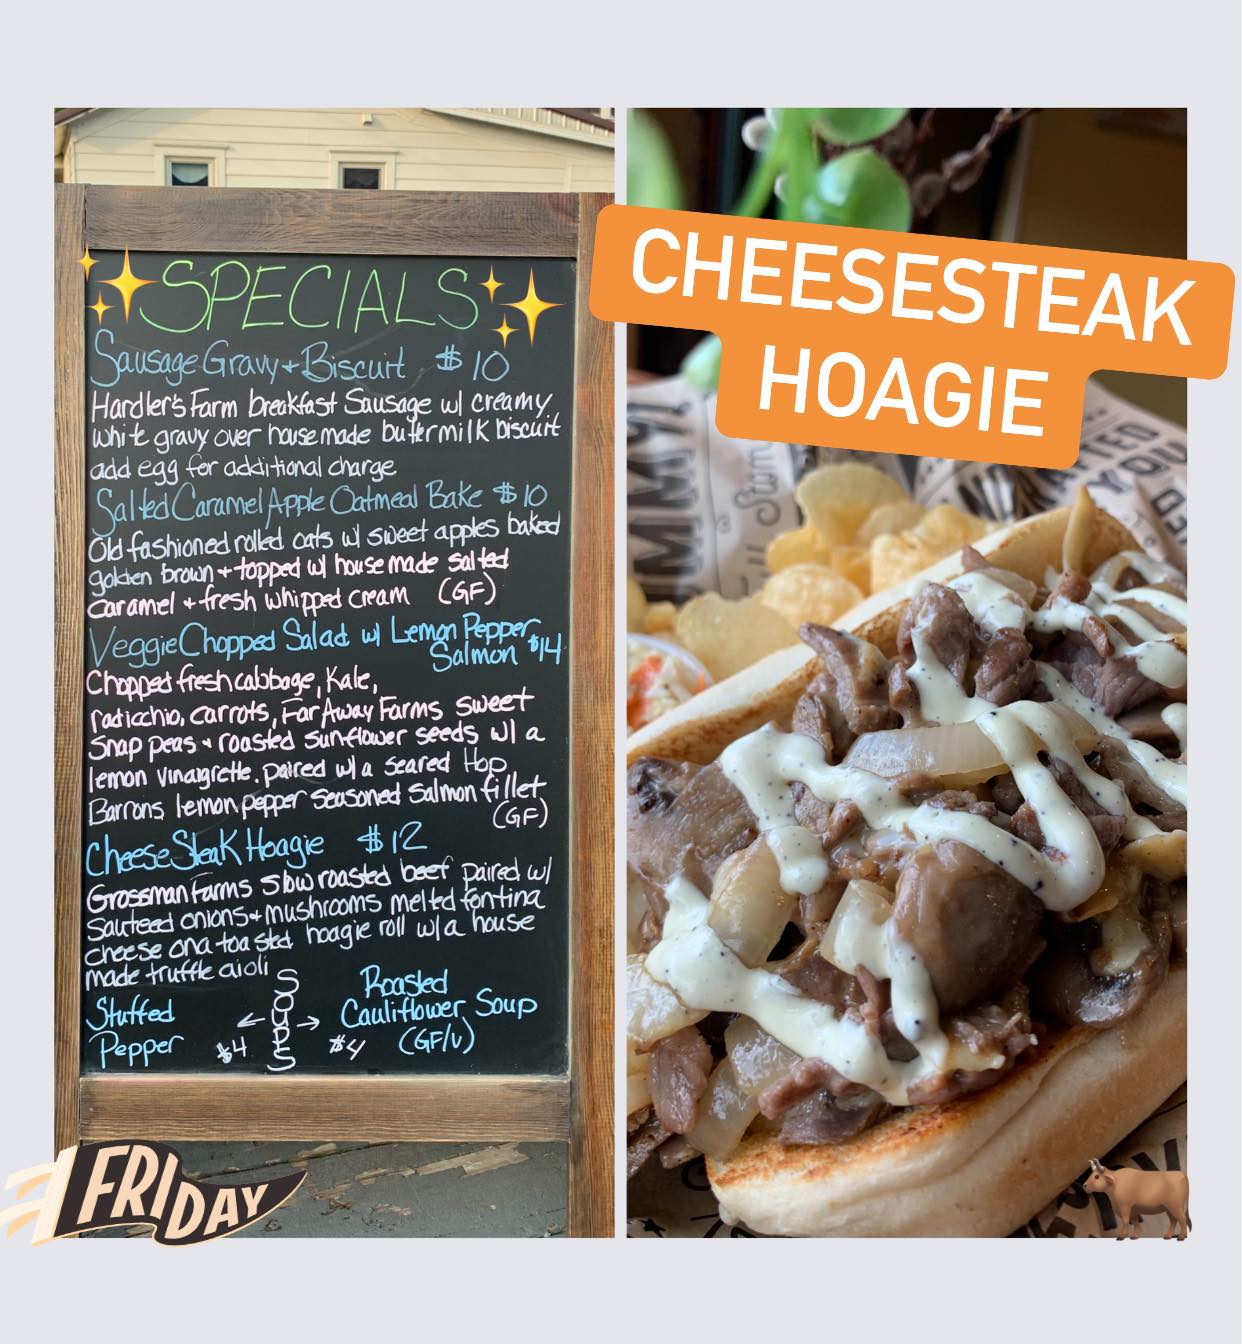 SPECIALS
Sausage Gravy + Biscuit $10
Handler's Farm breakfast Sausage w/ creamy
white gravy over housemade butermilk biscuit
add egg for additional charge
Salted Caramel Apple Oatmeal Bake $10
Old fashioned rolled oats w/ sweet apples baked
golden brown + topped w/ house made salted
caramel + fresh whipped cream (GF)
Veggie Chopped Salad w/ Lemon Pepper
Salmon $14
Chopped fresh cabbage, Kale,
radicchio, carrots, Far Away Farms sweet
Snap peas + roasted sunflower seeds w/ a
lemon vinaigrette. paired w/ a seared Hop
Barrons lemon pepper seasoned Salmon fillet
(GF)
Cheese Steak Hoagie $12
Grossman Farms slow roasted beef paired w/
sauteed onions + mushrooms melted fontina
cheese on a toasted hoagie roll w/ a house
made truffle aioli
Soups
Stuffed
Pepper $4
Roasted
Cauliflower Soup
$4 (GF/V)
FRIDAY
CHEESESTEAK
HOAGIE